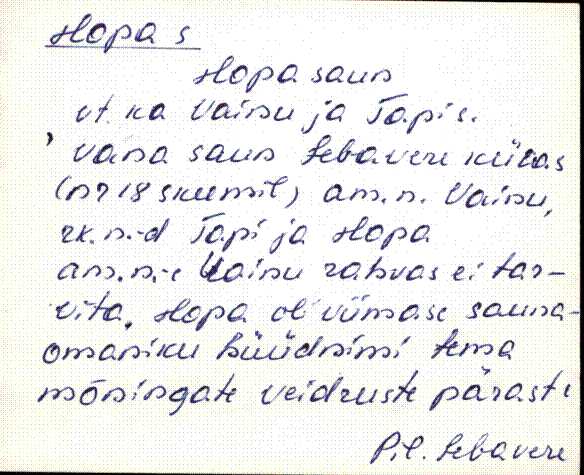 Hopa s
Hopa saun
vt. ka Vainu ja Tapi s.
vana saun Sebavere külas
(nr 18 skemil) am.n. Vainu,
rk.n.-d Tapi ja Hopa
am.n.-e Vainu rahvas ei tar-
vita. Hopa oli viimase sauna-
omaniku hüüdnimi tema
mõningate veidruste pärast.
Pil. Sebavere